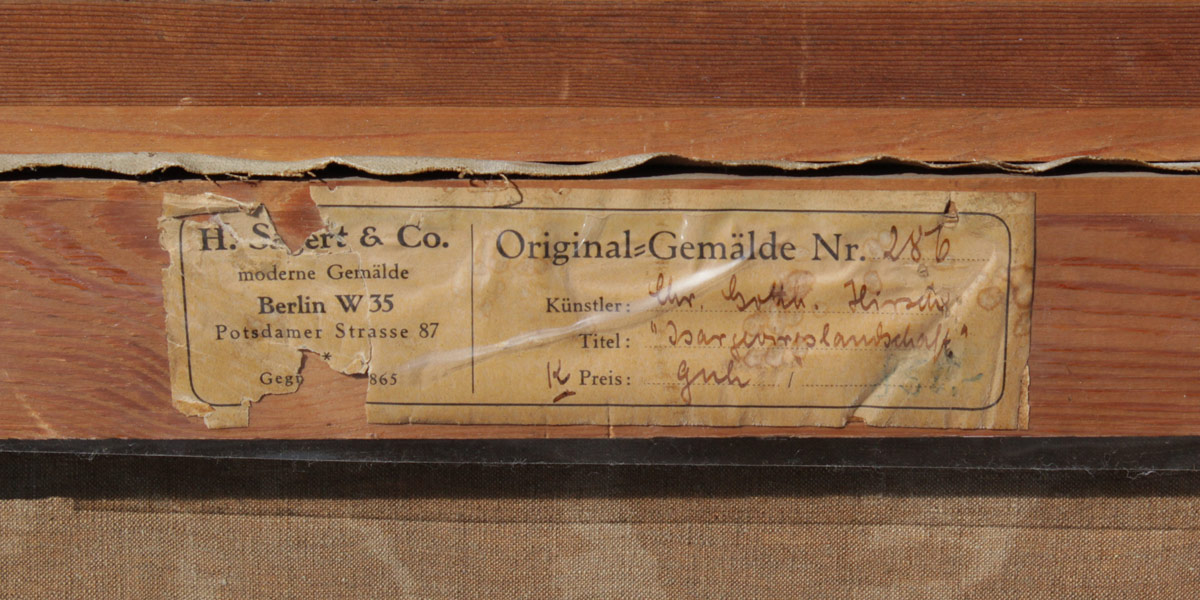 H. & Co.
moderne Gemälde
Berlin W 35
Potsdamer Strasse 87
*
865
Original=Gemälde Nr. 286
Künstler: Chr. Gotth. Hirsch
Titel: "Isargebirgslandschaft"
K Preis: /